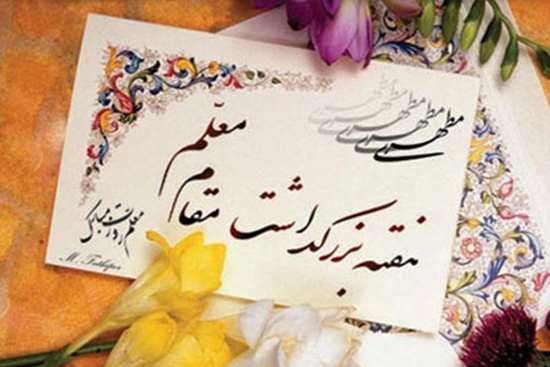 مطهری مطهری مطهری مطهری مطهری
هفته بزرگداشت مقام معلم
معلم روزت مبارک
M. Fathipor